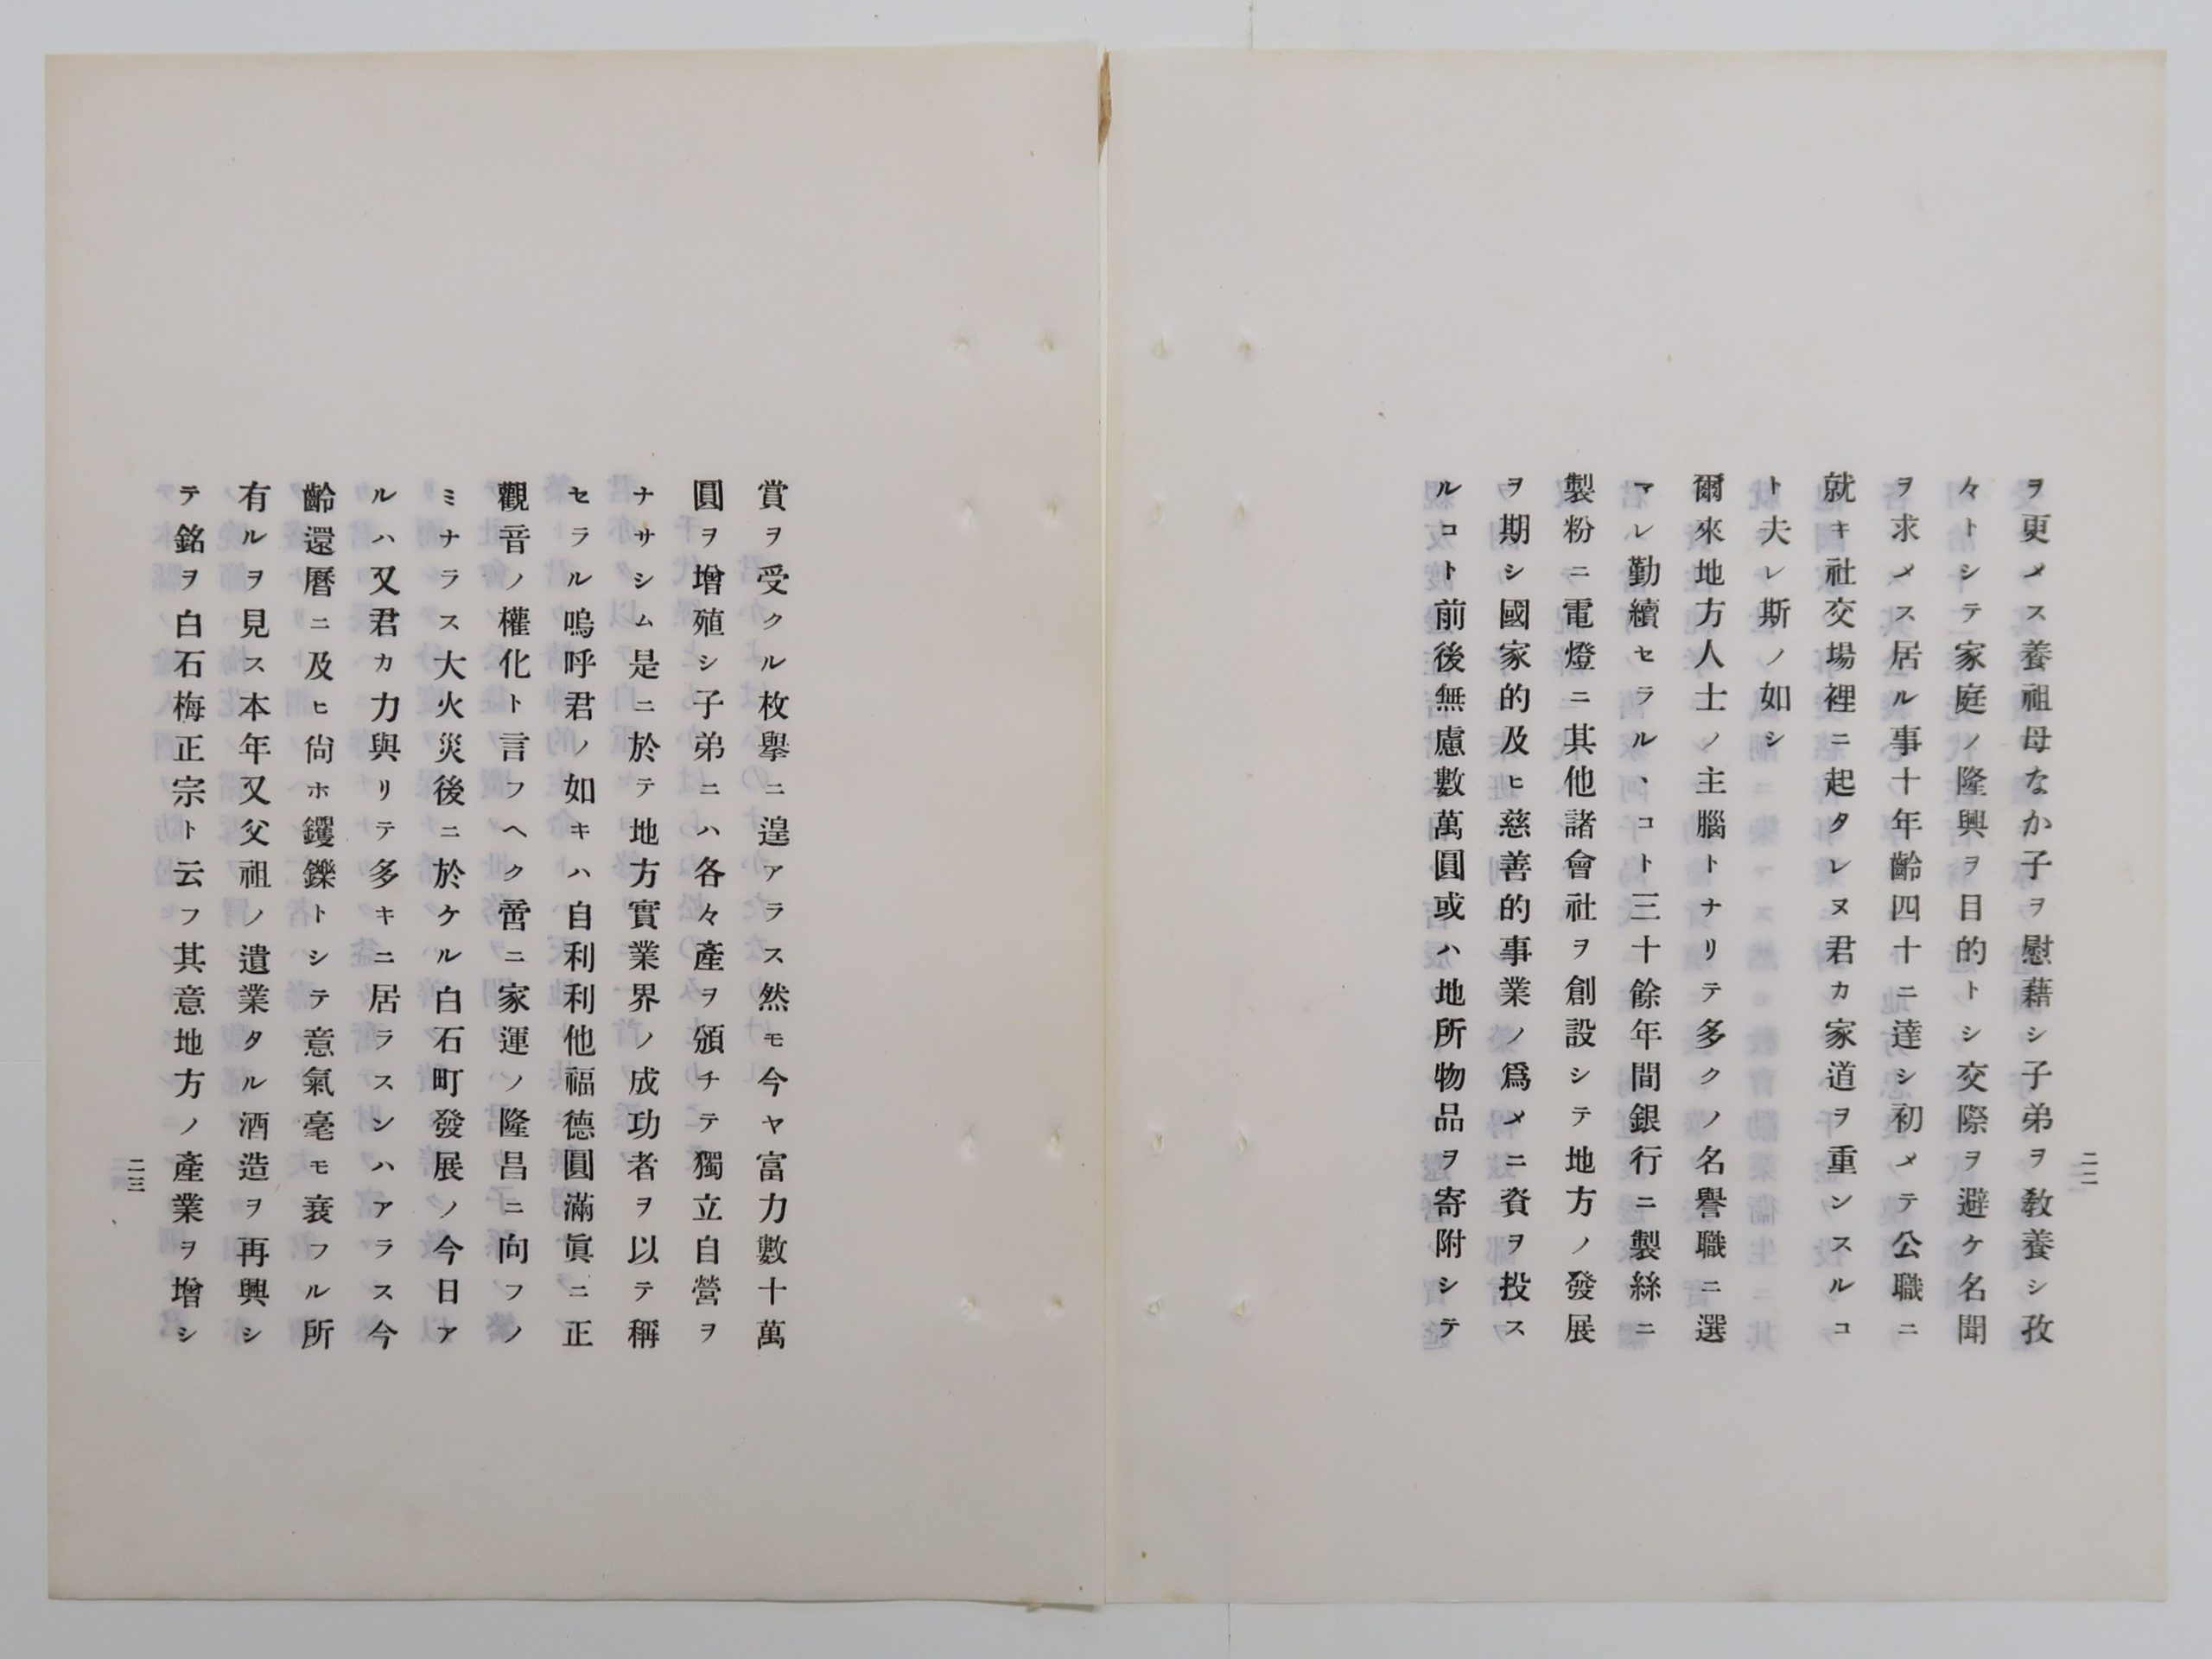 二二
ヲ更メス養祖母なか子ヲ慰藉シ子弟ヲ敎養シ孜
々トシテ家庭ノ隆興ヲ目的トシ交際ヲ避ケ名聞
ヲ求メス居ル事十年齡四十ニ達シ初メテ公職ニ
就キ社交場裡ニ起タレヌ君カ家道ヲ重ンスルコ
ト夫レ斯ノ如シ
爾來地方人士ノ主腦トナリテ多クノ名譽職ニ選
マレ勤續セラルヽコト三十餘年間銀行ニ製絲ニ
製粉ニ電燈ニ其他諸會社ヲ創設シテ地方ノ發展
ヲ期シ國家的及ヒ慈善的事業ノ爲メニ資ヲ投ス
ルコト前後無慮數萬圓或ハ地所物品ヲ寄附シテ
賞ヲ受クル枚擧ニ遑アラス然モ今ヤ富力數十萬
圓ヲ增殖シ子弟ニハ各々產ヲ頒チテ獨立自營ヲ
ナサシム是ニ於テ地方實業界ノ成功者ヲ以テ稱
セラル嗚呼君ノ如キハ自利利他福德圓滿眞ニ正
觀音ノ權化ト言フヘク啻ニ家運ノ隆昌ニ向フノ
ミナラス大火災後ニ於ケル白石町發展ノ今日ア
ルハ又君カ力與リテ多キニ居ラスンハアラス今
齡還曆ニ及ヒ尙ホ钁鑠トシテ意氣毫モ衰フル所
有ルヲ見ス本年又父祖ノ遺業タル酒造ヲ再興シ
テ銘ヲ白石梅正宗ト云フ其意地方ノ產業ヲ增シ
二三